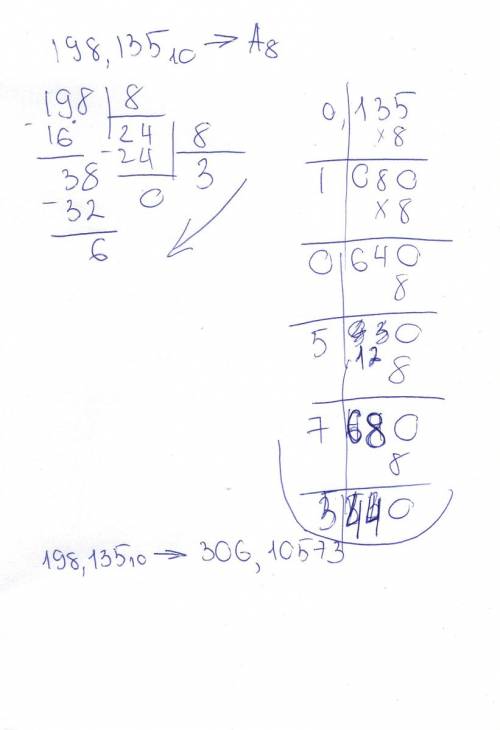 198,135₁₀ → A₈
198 | 8
- 16 | 24 | 8
38 - 24 3
- 32 0
6
0, | 135
× 8
1 | 080
× 8
0 | 640
8
5 | 120
8
7 | 680
8
3 | 440
198,135₁₀ → 306,10573